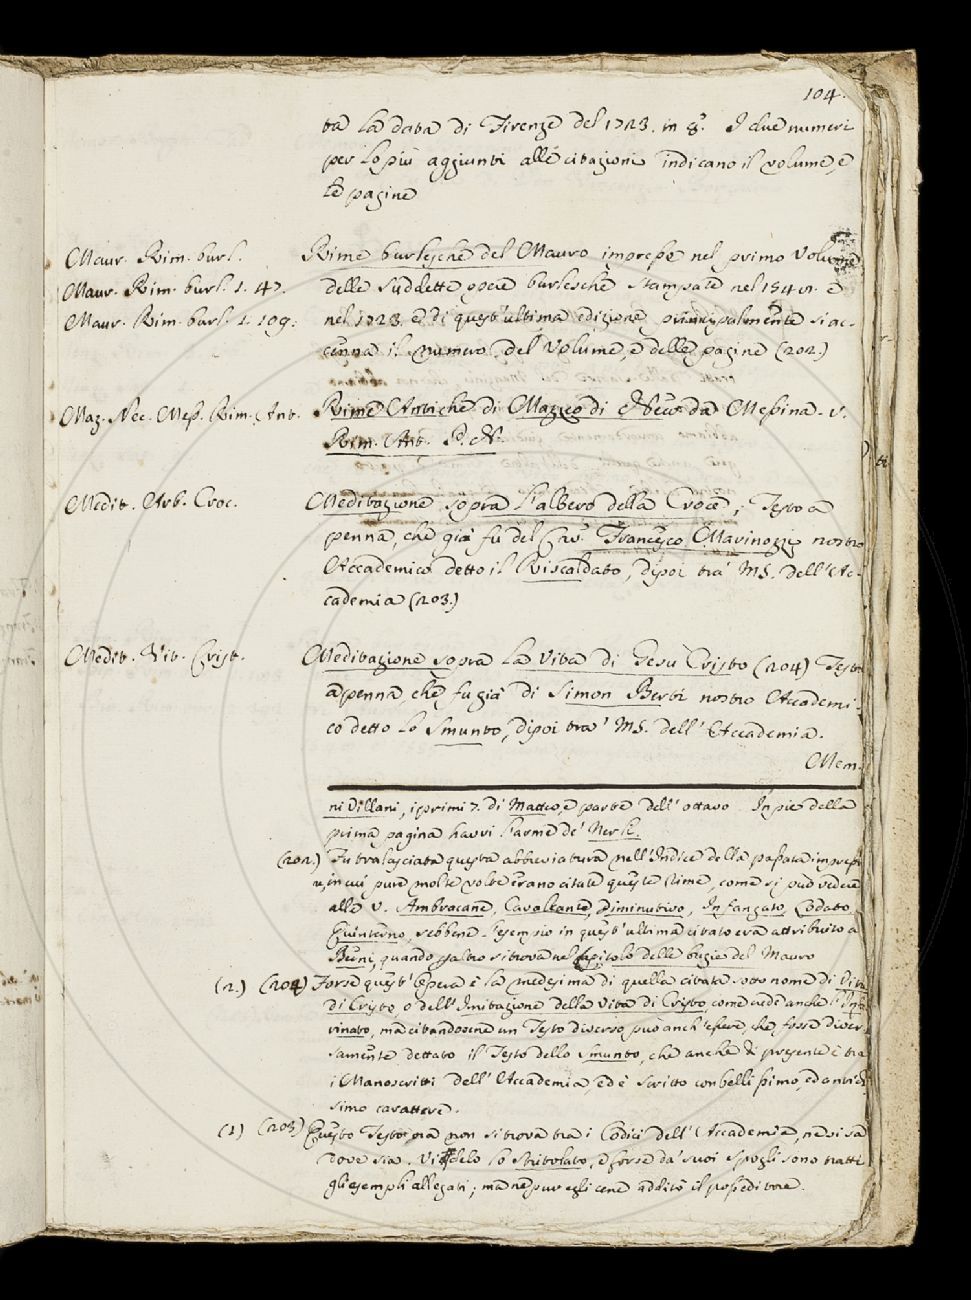 104.
ta la data di Firenze del 1723. in 8.° I due numeri
per lo più aggiunti alle citazioni indicano il volume, e
le pagine
Maur. Rim. burl.
Rime burlesche del Mauro impresse nel primo Volume
Maur. Rim. burl. 1. 47.
delle suddette opere burlesche stampate nel e
Maur. Rim. burl. 1. 109.
nel 1723. e di quest'ultima edizione principalmente si ac-
cenna il numero del Volume, e delle pagine (202.)
Maz. Ric. Mess. Rim. Ant.
Rime Antiche di Mazzeo di Ricco da Messina. v.
Rim. Ant. P. N.
Medit. Arb. Croc.
Meditazione sopra l'albero della Croce, Testo a
penna, che già fu del Cav. Francesco Marinozzi nostro
Accademico detto il Riscaldato, dipoi tra' MS. dell'Ac-
cademia (203.)
Medit. Vit. Crist.
Meditazione sopra la Vita di Gesù Cristo (204) Testo
a penna, che fu già di Simon Berti nostro Accademi-
co detto lo Smunto, dipoi tra' MS. dell'Accademia.
Mem.
ni Villani, i primi 7. di Matteo, e parte dell'ottavo. In piè della
prima pagina havvi l'arme de' Nerli.
(202.) Fu tralasciata questa abbreviatura nell'Indice della passata impressio-
in cui pure molte volte erano citate queste Rime, come si può vedere
alle v. Ambracane, Cavalcante, Diminutivo, Infangato, Lodato,
Quinterno, sebbene l'esempio in quest'ultima citato era attribuito a
Berni, quando peraltro si trova nel Capitolo delle bugie del Mauro
(2.) (204) Forse quest'Opera è la medesima di quella citata sotto nome di Vita
di Cristo, o dell'Imitazione della Vita di Cristo, come crede anche l'
, ma citandosene un Testo diverso, può anch'essere, che fosse diver-
samente dettato il Testo dello Smunto, che anche di presente è tra
i Manoscritti dell'Accademia, ed è scritto con bellissimo, ed antichis-
simo carattere.
(1) (203) Questo Testo ora non si trova tra i Codici dell'Accademia, nè si sa
dove sia. lo Stritolato, e forse da' suoi spogli sono tratti
gli esempli allegati; ma nè pur egli cene additò il posseditore.